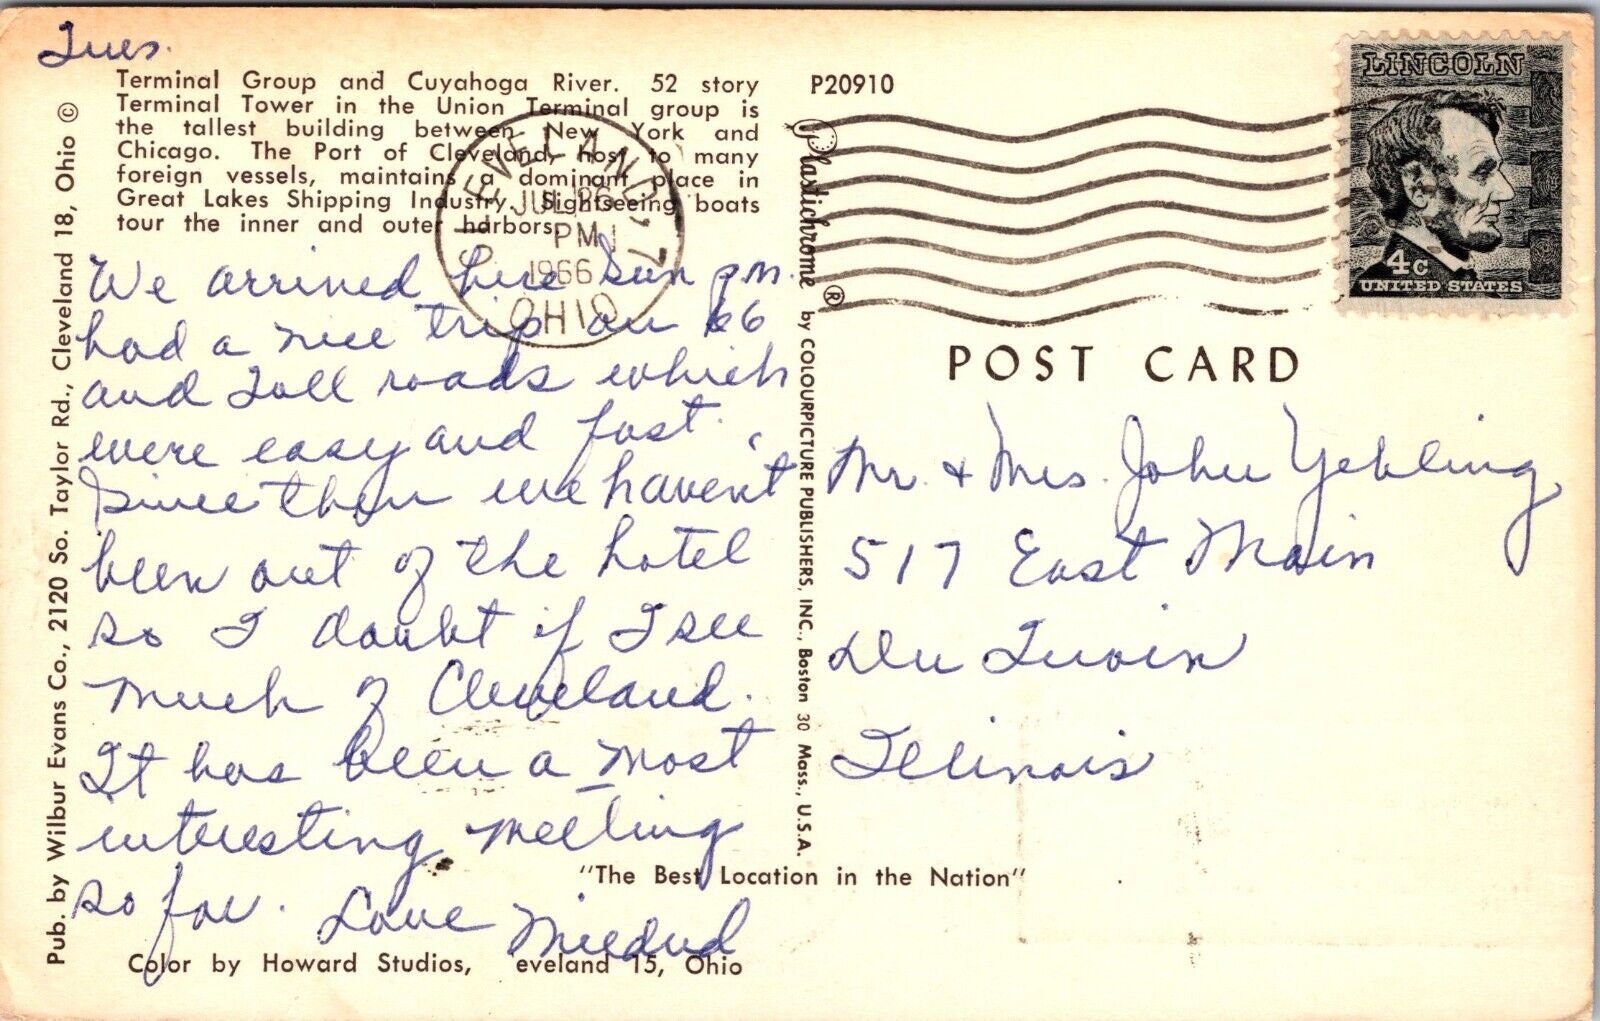 Tues.
Terminal Group and Cuyahoga River. 52 story
Terminal Tower in the Union Terminal group is
the tallest building between New York and
Chicago. The Port of Cleveland, host to many
foreign vessels, maintains a dominant place in
Great Lakes Shipping Industry. Sightseeing boats
tour the inner and outer harbors.
We arrived here Sun pm.
had a nice trip on 66
and Toll roads which
were easy and fast.
Since then we haven't
been out of the hotel
so I doubt if I see
much of Cleveland.
It has been a most
interesting meeting
so far. Love Mildred
Color by Howard Studios, eveland 15, Ohio
Pub. by Wilbur Evans Co., 2120 So. Taylor Rd., Cleveland 18, Ohio ©
"The Best Location in the Nation"
Plastichrome ® by COLOURPICTURE PUBLISHERS, INC., Boston 30 Mass., U.S.A.
P20910
CLEVELAND,
JUL 26
PM
1966
OHIO
LINCOLN
4c
UNITED STATES
POST CARD
Mr. & Mrs. John Yehling
517 East Main
Du Quoin
Illinois